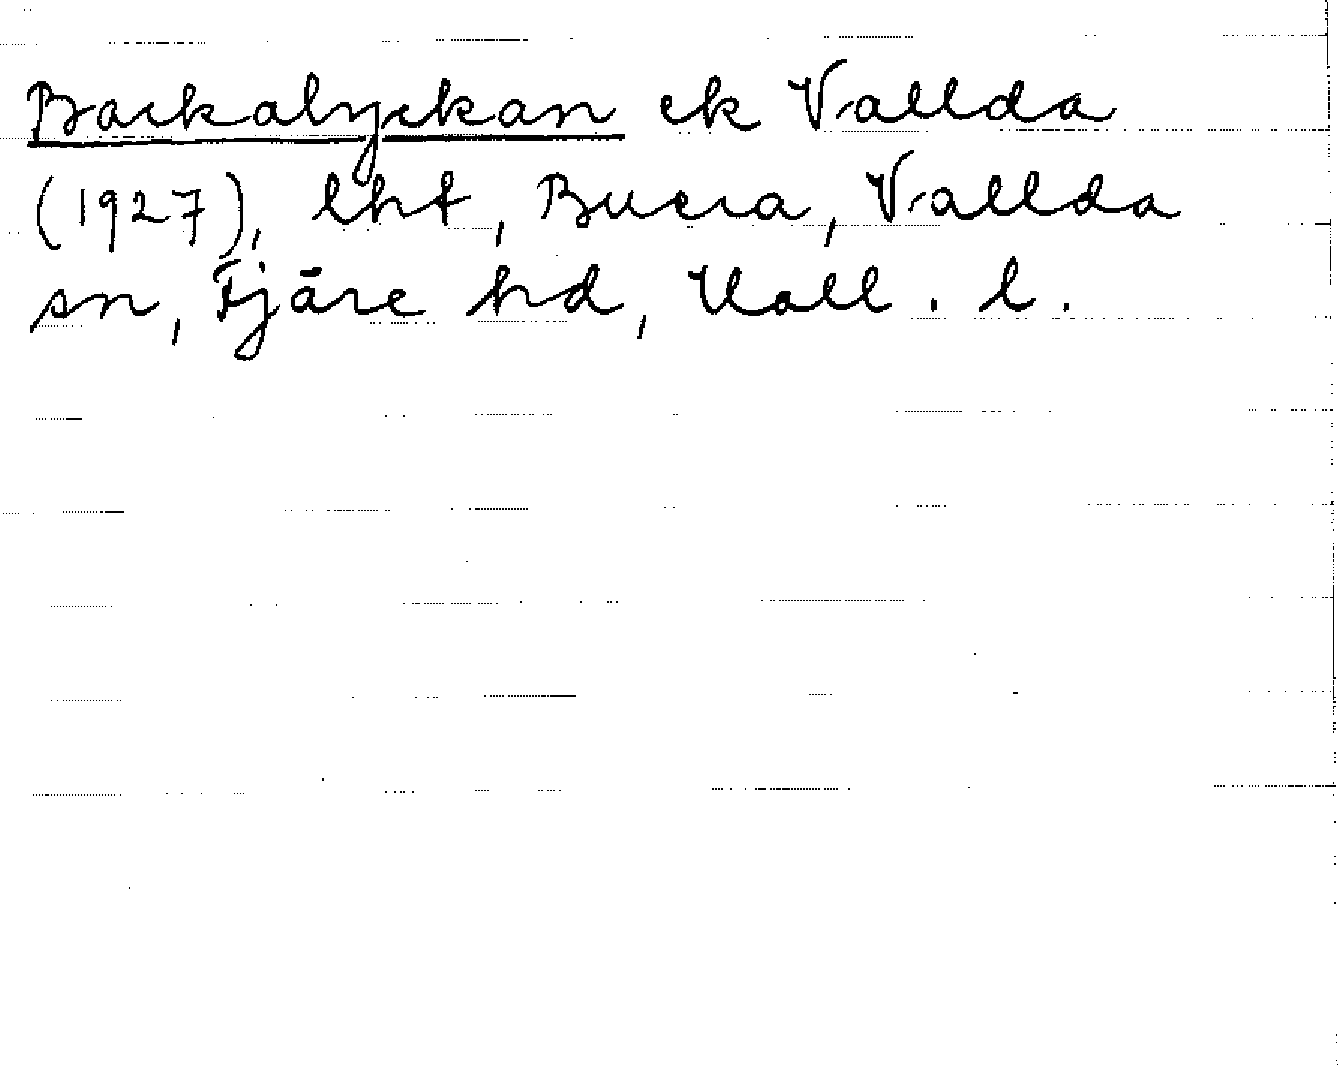 Backalyckan ek Vallda
(1927), lht, Buera, Vallda
sn, Fjäre hd, Hall. l.